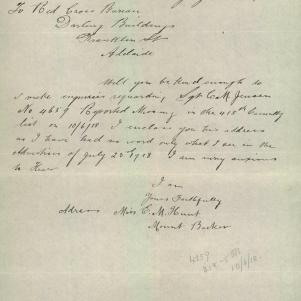 To Red Cross Bureau
Darling Buildings
Franklin St
Adelaide
Will you be kind enough to
make enquiries regarding Sgt C. M. Jensen
No 4659 Reported Missing in the 415th Casualty
list on 10/6/18 I enclose you this address
as I have had no word only what I see in the
Advertiser of July 23rd 1918 I am very anxious
to Hear
I am
Yours Faithfully
Address Miss E. M. Hunt
Mount Barker
10/6/18